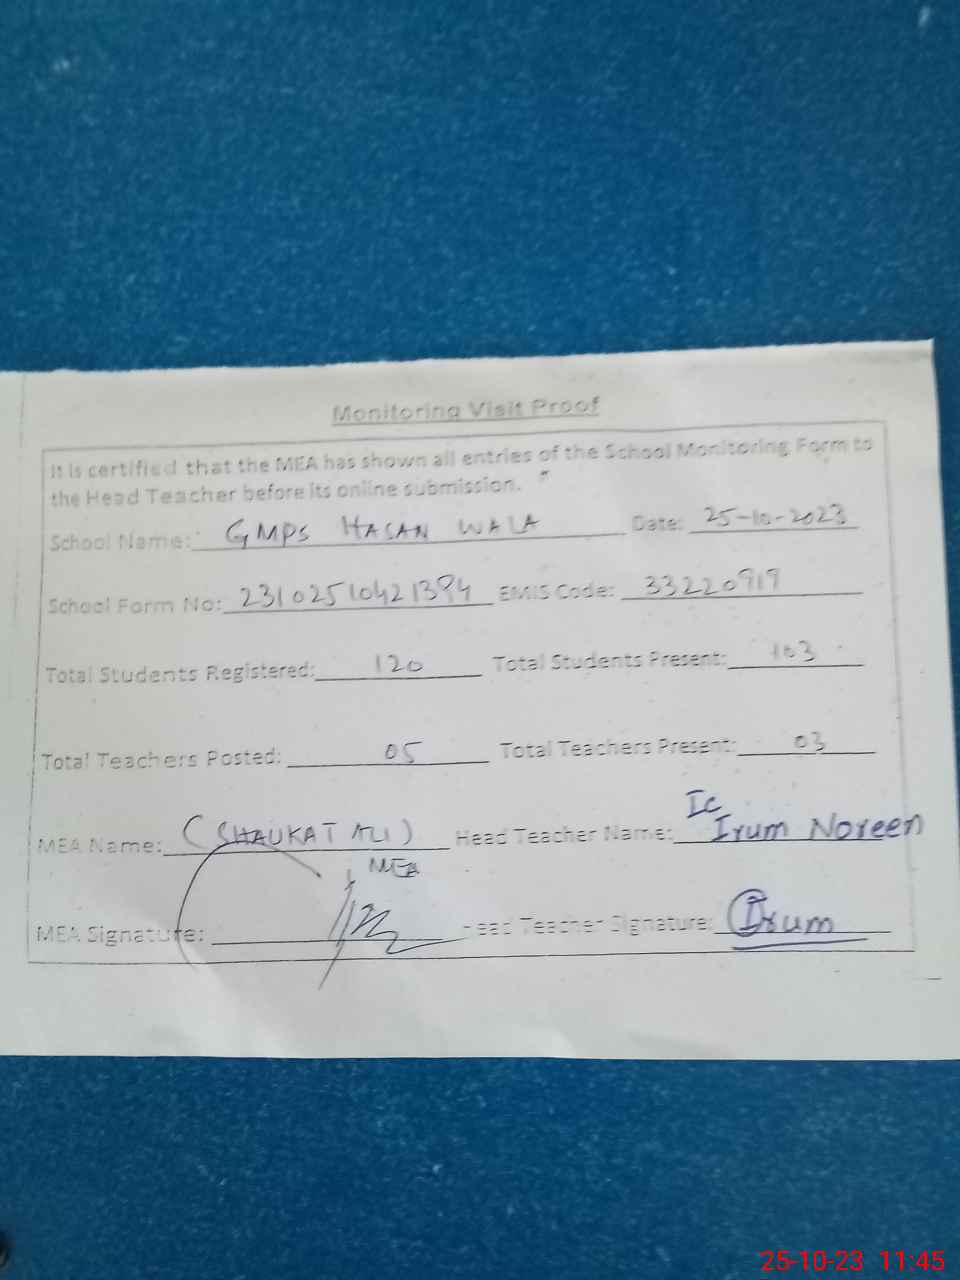 Monitoring Visit Proof
It is certified that the MEA has shown all entries of the School Monitoring Form to
the Head Teacher before its online submission.
School Name: GMPS HASAN WALA Date: 25-10-2023
School Form No: 23102510421394 EMIS Code: 33220919
Total Students Registered: 120 Total Students Present: 103
Total Teachers Posted: 05 Total Teachers Present: 03
MEA Name: (SHAUKAT ALI) Head Teacher Name: Ic Irum Noreen
MEA
MEA Signature: Head Teacher Signature: Irum
25-10-23 11:45